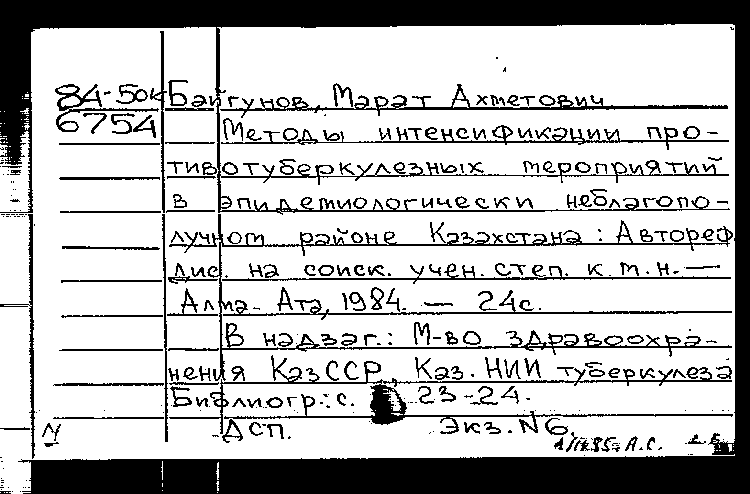 84-50к Байгунов, Марат Ахметович
6754 Методы интенсификации про-
тивотуберкулезных мероприятий
в эпидемиологически неблагопо-
лучном районе Казахстана: Автореф
дис. на соиск. учен. степ. к.м.н. —
Алма-Ата, 1984. — 24с.
В надзаг.: М-во здравоохра-
нения КазССР, Каз. НИИ туберкулеза
Библиогр.: с. 23-24.
ДСП. Экз. N6.
А.С.